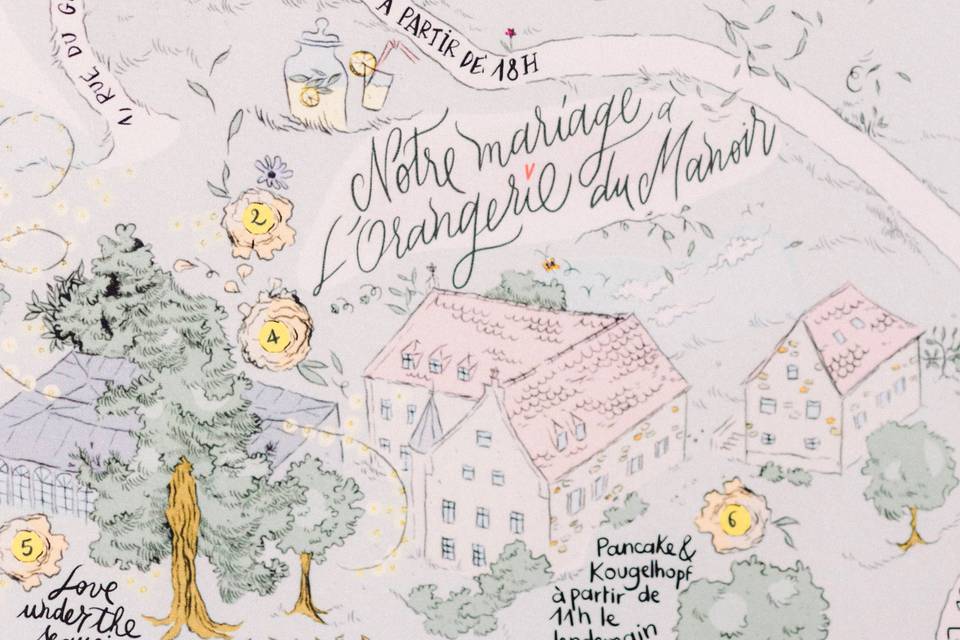 À PARTIR DE 18H
1, RUE DU
Notre mariage à
L'Orangerie du Manoir
2
4
5
6
Love
under the
Pancake &
Kougelhopf
à partir de
11h le
lendemain